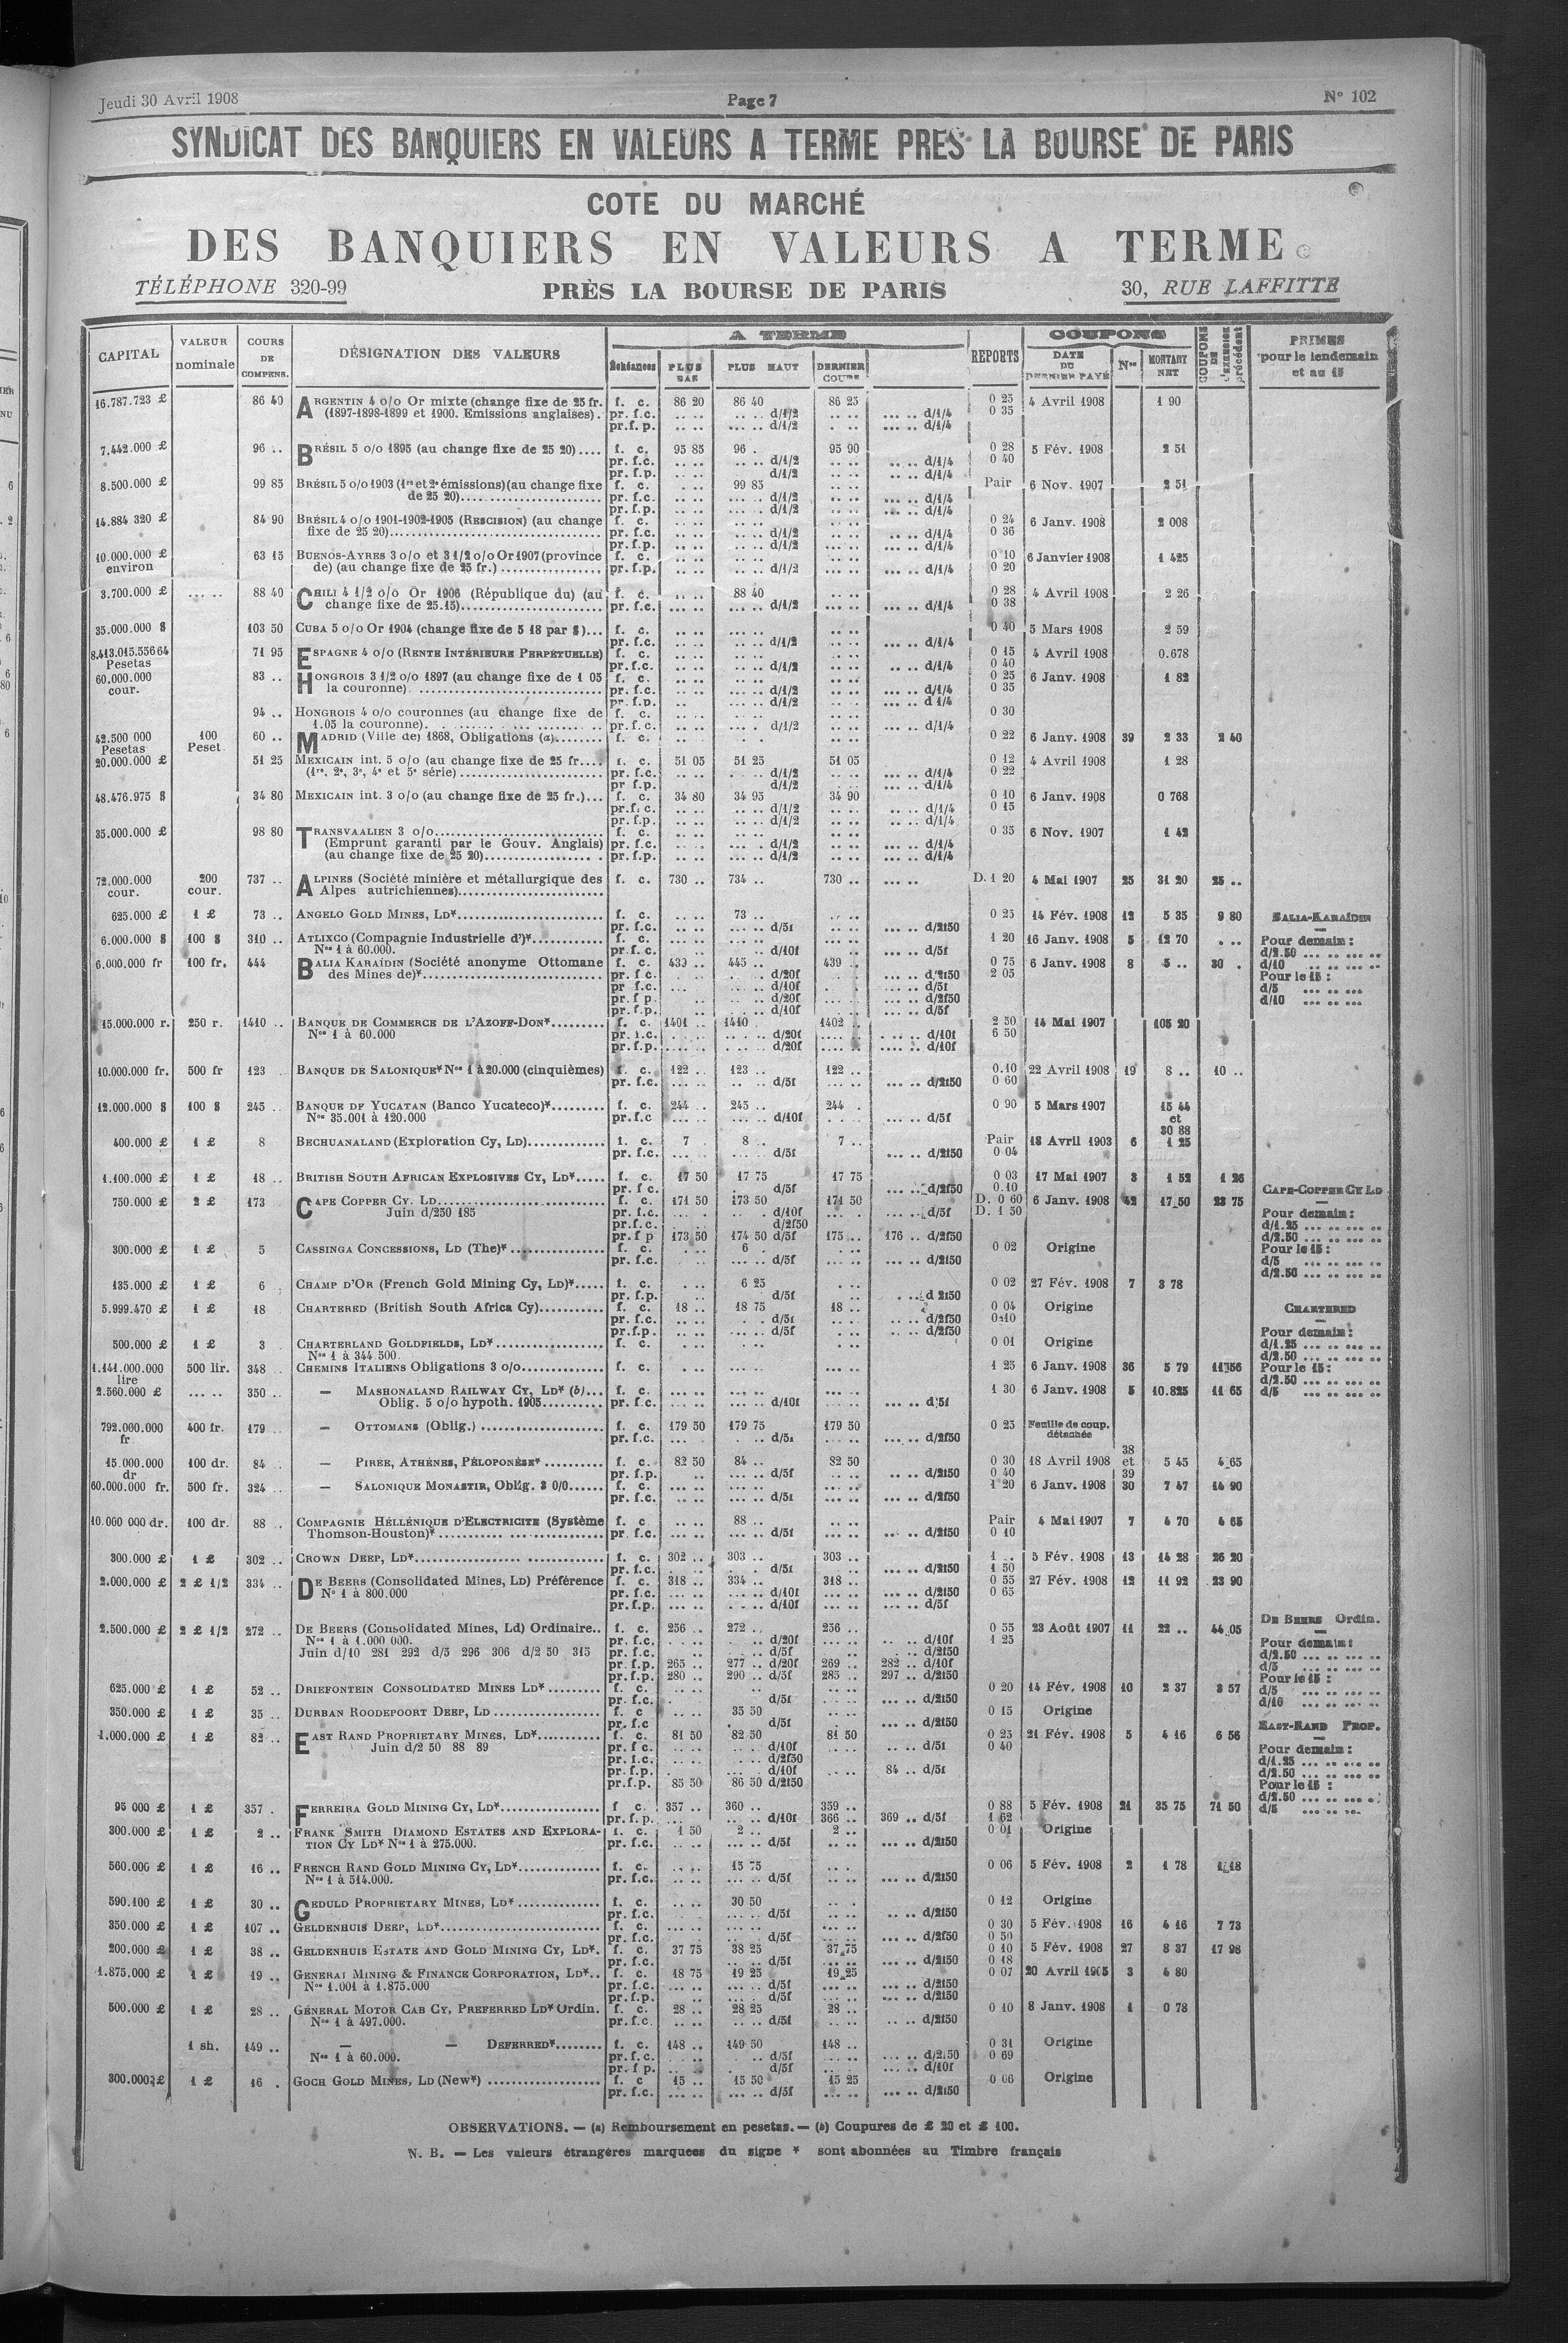 Jeudi 30 Avril 1908
Page 7
N° 102
SYNDICAT DES BANQUIERS EN VALEURS A TERME PRES LA BOURSE DE PARIS
COTE DU MARCHÉ
DES BANQUIERS EN VALEURS A TERME
TÉLÉPHONE 320-99
PRÈS LA BOURSE DE PARIS
30, RUE LAFFITTE
CAPITAL VALEUR nominale COURS DE COMPENS. DÉSIGNATION DES VALEURS A TERME Échéances PLUS BAS PLUS HAUT DERNIER COURS REPORTS COUPONS DATE DU DERNIER PAYÉ Nos MONTANT NET COUPONS DE l'exercice précédent PRIMES pour le lendemain et au 15
16.787.723 £ 86 40 ARGENTIN 4 o/o Or mixte (change fixe de 25 fr. f. c. 86 20 86 40 86 25 0 25 4 Avril 1908 1 90
(1897-1898-1899 et 1900. Emissions anglaises). pr. f.c. d/1/2 d/1/4 0 35
pr.f.p. d/1/2 d/1/4
7.442.000 £ 96 .. BRÉSIL 5 o/o 1895 (au change fixe de 25 20).... f. c. 95 85 96 . 95 90 0 28 5 Fév. 1908 2 51
pr. f.c. d/1/2 d/1/4 0 40
pr. f.p. d/1/2 d/1/4
8.500.000 £ 99 85 BRÉSIL 5 o/o 1903 (1re et 2e émissions)(au change fixe f. c. 99 85 Pair 6 Nov. 1907 2 51
de 25 20) pr. f.c. d/1/2 d/1/4
pr. f.p. d/1/2 d/1/4
14.884 320 £ 84 90 BRÉSIL 4 o/o 1901-1902-1905 (RESCISION) (au change f. c. 0 24 6 Janv. 1908 2 008
fixe de 25 20) pr. f.c. d/1/2 d/1/4 0 36
pr. f.p. d/1/2 d/1/4
10.000.000 £ 63 15 BUENOS-AYRES 3 o/o et 3 1/2 o/o Or 1907 (province f. c. 0 10 6 Janvier 1908 1 425
environ de) (au change fixe de 25 fr.) pr. f.p. d/1/2 d/1/4 0 20
3.700.000 £ 88 40 CHILI 4 1/2 o/o Or 1906 (République du) (au f. c. 88 40 0 28 4 Avril 1908 2 26
change fixe de 25.15) pr. f.c. d/1/2 d/1/4 0 38
35.000.000 $ 103 50 CUBA 5 o/o Or 1904 (change fixe de 5 18 par $)... f. c. 0 40 5 Mars 1908 2 59
pr. f.c. d/1/2 d/1/4
8.413.015.556 64 71 95 ESPAGNE 4 o/o (RENTE INTÉRIEURE PERPÉTUELLE) f. c. 0 15 4 Avril 1908 0.678
Pesetas pr. f.c. d/1/2 d/1/4 0 40
60.000.000 83 .. HONGROIS 3 1/2 o/o 1897 (au change fixe de 1 05 f. c. 0 25 6 Janv. 1908 1 82
cour. la couronne) pr. f.c. d/1/2 d/1/4 0 35
pr. f.p. d/1/2 d 1/4
94 .. HONGROIS 4 o/o couronnes (au change fixe de f. c. 0 30
1.05 la couronne). pr. f. c. d/1/2 d/1/4
42.500 000 100 60 .. MADRID (Ville de) 1868, Obligations (a) f. c. 0 22 6 Janv. 1908 39 2 33 2 40
Pesetas Peset
20.000.000 £ 51 25 MEXICAIN int. 5 o/o (au change fixe de 25 fr.... f. c. 51 05 51 25 51 05 0 12 4 Avril 1908 1 28
(1re, 2e, 3e, 4e et 5e série) pr. f.c. d/1/2 d/1/4 0 22
pr f.p. d/1/2 d/1/4
48.476.975 $ 34 80 MEXICAIN int. 3 o/o (au change fixe de 25 fr.)... f. c. 34 80 34 95 34 90 0 10 6 Janv. 1908 0 768
pr.f. c. d/1/2 d/1/4 0 15
pr. f.p. d/1/2 d/1/4
35.000.000 £ 98 80 TRANSVAALIEN 3 o/o f. c. 0 35 6 Nov. 1907 1 42
(Emprunt garanti par le Gouv. Anglais) pr. f.c. d/1/2 d/1/4
(au change fixe de 25 20) pr. f.p. d/1/2 d/1/4
72.000.000 200 737 .. ALPINES (Société minière et métallurgique des f. c. 730 .. 734 .. 730 .. D. 1 20 4 Mai 1907 25 31 20 25 ..
cour. cour. Alpes autrichiennes)
625.000 £ 1 £ 73 .. ANGELO GOLD MINES, LD* f. c. 73 .. 0 25 14 Fév. 1908 12 5 35 9 80 BALIA-KARAÏDIN
pr. f.c. d/5f d/2f50
6.000.000 $ 100 $ 310 .. ATLIXCO (Compagnie Industrielle d')* f. c. 1 20 16 Janv. 1908 5 12 70 Pour demain :
Nos 1 à 60.000. pr.f.c. d/10f d/5f d/2.50
6.000.000 fr 100 fr. 444 BALIA KARAÏDIN (Société anonyme Ottomane f. c. 439 .. 445 .. 439 .. 0 75 6 Janv. 1908 8 5 .. 30 . d/10
des Mines de)* pr. f c. d/20f d/2f50 2 05 Pour le 15 :
pr f.c. d/10f d/5f d/5
pr. f p. d/20f d/2f50 d/10
pr. f.p. d/10f d/5f
15.000.000 r. 250 r. 1410 .. BANQUE DE COMMERCE DE L'AZOFF-DON* f. c. 1401 .. 1410 .. 1402 .. 2 50 14 Mai 1907 105 20
Nos 1 à 60.000 pr. f.c. d/20f d/10f 6 50
pr. f.p. d/20f d/10f
10.000.000 fr. 500 fr 123 BANQUE DE SALONIQUE* Nos 1 à 20.000 (cinquièmes) f. c. 122 .. 123 .. 122 .. 0.10 22 Avril 1908 19 8 .. 10 ..
pr. f.c. d/5f d/2f50 0 60
12.000.000 $ 100 $ 245 .. BANQUE DE YUCATAN (Banco Yucateco)* f. c. 244 .. 245 .. 244 . 0 90 5 Mars 1907 15 44
Nos 35.001 à 120.000 pr.f.c d/10f d/5f et
30 88
400.000 £ 1 £ 8 BECHUANALAND (Exploration Cy, LD) f. c. 7 8 .. 7 .. Pair 18 Avril 1903 6 1 25
pr. f.c. d/5f d/2f50 0 04
1.100.000 £ 1 £ 18 .. BRITISH SOUTH AFRICAN EXPLOSIVES CY, LD* f. c. 17 50 17 75 17 75 0 03 17 Mai 1907 3 1 52 1 26
pr. f c. d/5f d/2f50 0.10 CAPE-COPPER CY LD
750.000 £ 2 £ 173 CAPE COPPER CY. LD f. c. 171 50 173 50 171 50 D. 0 60 6 Janv. 1908 42 17,50 23 75
Juin d/250 185 pr. f.c. d/10f d/5f D. 1 50 Pour demain :
pr.f.c. d/2f50 d/1.25
pr.f p 173 50 174 50 d/5f 175 .. 176 .. d/2f50 d/2.50
300.000 £ 1 £ 5 CASSINGA CONCESSIONS, LD (The)* f. c. 6 . 0 02 Origine Pour le 15 :
pr. f.c. d/5f d/2f50 d/5
d/2.50
135.000 £ 1 £ 6 CHAMP D'OR (French Gold Mining Cy, LD)* f. c. 6 25 0 02 27 Fév. 1908 7 3 78
pr. f.p. d/5f d 2f50
5.999.470 £ 1 £ 18 CHARTERED (British South Africa Cy) f. c. 18 .. 18 75 18 .. 0 04 Origine CHARTERED
pr. f.c. d/5f d/2f50 0 10
pr.f.p. d/5f d/2f50 Pour demain :
500.000 £ 1 £ 3 CHARTERLAND GOLDFIELDS, LD* f. c. 0 01 Origine d/1.25
Nos 1 à 344 500. d/2.50
1.141.000.000 500 lir. 348 CHEMINS ITALIENS Obligations 3 o/o f. c. 1 25 6 Janv. 1908 36 5 79 11 56 Pour le 15 :
lire d/2.50
2.560.000 £ 350 .. — MASHONALAND RAILWAY CY, LD* (b)... f. c. 1 30 6 Janv. 1908 5 10.825 11 65 d/5
Oblig. 5 o/o hypoth. 1905 pr. f.c. d/10f d/5f
792.000.000 400 fr. 179 — OTTOMANS (Oblig.) f. c. 179 50 179 75 179 50 0 25 Feuille de coup.
fr pr. f.c. d/5f d/2f50 détachée
38
15.000.000 100 dr. 84 — PIRÉE, ATHÈNES, PÉLOPONÈSE* f. c. 82 50 84 .. 82 50 0 30 18 Avril 1908 et 5 45 4 65
dr pr. f.p. d/5f d/2f50 0 40 39
60.000.000 fr. 500 fr. 324 — SALONIQUE MONASTIR, Oblig. 3 0/0 f. c. 1 20 6 Janv. 1908 30 7 47 14 90
pr. f.c. d/5f d/2f50
10.000 000 dr. 100 dr. 88 COMPAGNIE HÉLLÉNIQUE D'ELECTRICITE (Système f. c 88 .. Pair 4 Mai 1907 7 4 70 4 65
Thomson-Houston)* pr. f.c. d/5f d/2f50 0 10
300.000 £ 1 £ 302 CROWN DEEP, LD* f. c. 302 .. 303 .. 303 .. 1 .. 5 Fév. 1908 13 14 28 26 20
pr. f.c. d/5f d/2f50 1 50
2.000.000 £ 2 £ 1/2 334 DE BEERS (Consolidated Mines, LD) Préférence f. c. 318 .. 334 .. 318 .. 0 55 27 Fév. 1908 12 11 92 23 90
N° 1 à 800.000 pr. f.c. d/10f d/2f50 0 65
pr. f.p. d/10f d/5f
2.500.000 £ 2 £ 1/2 272 DE BEERS (Consolidated Mines, Ld) Ordinaire.. f. c. 256 .. 272 .. 256 .. 0 55 23 Août 1907 11 22 .. 44 05 DE BEERS Ordin.
Nos 1 à 1.000 000. pr. f.c. d/20f d/10f 1 25
Juin d/10 281 292 d/5 296 306 d/2 50 315 pr. f.c. d/5f d/2f50 Pour demain :
pr. f.p. 265 .. 277 .. d/20f 269 .. 282 .. d/10f d/2.50
pr. f.p. 280 .. 290 .. d/5f 285 .. 297 .. d/2f50 d/5
625.000 £ 1 £ 52 .. DRIEFONTEIN CONSOLIDATED MINES LD* f. c. 0 20 14 Fév. 1908 10 2 37 3 57 Pour le 15 :
pr. f.c. d/5f d/2f50 d/5
350.000 £ 1 £ 35 .. DURBAN ROODEPOORT DEEP, LD f. c 35 50 0 15 Origine d/10
pr. f.c d/5f d/2f50
1.000.000 £ 1 £ 82 .. EAST RAND PROPRIETARY MINES, LD* f. c. 81 50 82 50 81 50 0 25 21 Fév. 1908 5 4 16 6 56 EAST-RAND PROP.
Juin d/2 50 88 89 pr. f c. d/10f d/5f 0 40 Pour demain :
pr. f.c. d/2f50 d/1.25
pr. f.p. d/10f 84 .. d/5f d/2.50
pr.f.p. 85 50 86 50 d/2f50 Pour le 15 :
95 000 £ 1 £ 357 . FERREIRA GOLD MINING CY, LD* f c. 357 .. 360 .. 359 .. 0 88 5 Fév. 1908 21 35 75 71 50 d/2.50
pr. f.p. d/10f 366 .. 369 .. d/5f 1 62 d/5
300.000 £ 1 £ 2 .. FRANK SMITH DIAMOND ESTATES AND EXPLORA- f. c. 1 50 2 .. 2 .. 0 01 Origine
TION CY LD* Nos 1 à 275.000. pr. f.c. d/5f d/2f50
560.000 £ 1 £ 16 .. FRENCH RAND GOLD MINING CY, LD* f. c. 15 75 0 06 5 Fév. 1908 2 1 78 1 18
Nos 1 à 514.000. pr. f.c. d/5f d/2f50
590.100 £ 1 £ 30 .. GEDULD PROPRIETARY MINES, LD* f. c. 30 50 0 12 Origine
pr. f.c. d/5f d/2f50
350.000 £ 1 £ 107 .. GELDENHUIS DEEP, LD* f. c. 0 30 5 Fév. 1908 16 4 16 7 73
pr. f.c. d/5f d/2f50 0 50
200.000 £ 1 £ 38 .. GELDENHUIS ESTATE AND GOLD MINING CY, LD*. f. c. 37 75 38 25 37 75 0 10 5 Fév. 1908 27 8 37 17 98
pr. f.c. d/5f d/2f50 0 18
1.875.000 £ 1 £ 19 .. GENERAL MINING & FINANCE CORPORATION, LD*.. f. c. 18 75 19 25 19 25 0 07 20 Avril 1905 3 4 80
Nos 1.001 à 1.875.000 pr. f.c. d/5f d/2f50
pr. f.p. d/5f d/2f50
500.000 £ 1 £ 28 .. GÉNÉRAL MOTOR CAB CY, PREFERRED LD* Ordin. f. c. 28 .. 28 25 28 .. 0 10 8 Janv. 1908 1 0 78
Nos 1 à 497.000. pr. f.c. d/5f d/2f50
1 sh. 149 .. — — DEFERRED* f. c. 148 .. 149 50 148 .. 0 31 Origine
Nos 1 à 60.000. pr. f. c. d/5f d/2.50 0 69
pr. f p. d/5f d/10f
300.000 £ 1 £ 16 . GOCH GOLD MINES, LD (New*) f. c 15 .. 15 50 15 25 0 06 Origine
pr. f.c. d/5f d/2f50
OBSERVATIONS. — (a) Remboursement en pesetas. — (b) Coupures de £ 20 et £ 100.
N. B. — Les valeurs étrangères marquees du signe * sont abonnées au Timbre français